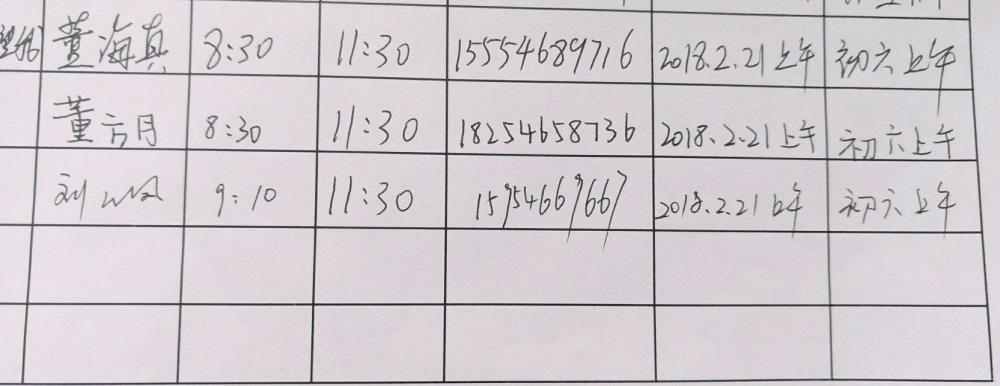 董海真 8:30 11:30 15554689716 2018.2.21上午 初六上午
董方月 8:30 11:30 18254658736 2018.2.21上午 初六上午
刘 9:10 11:30 2018.2.21上午 初六上午